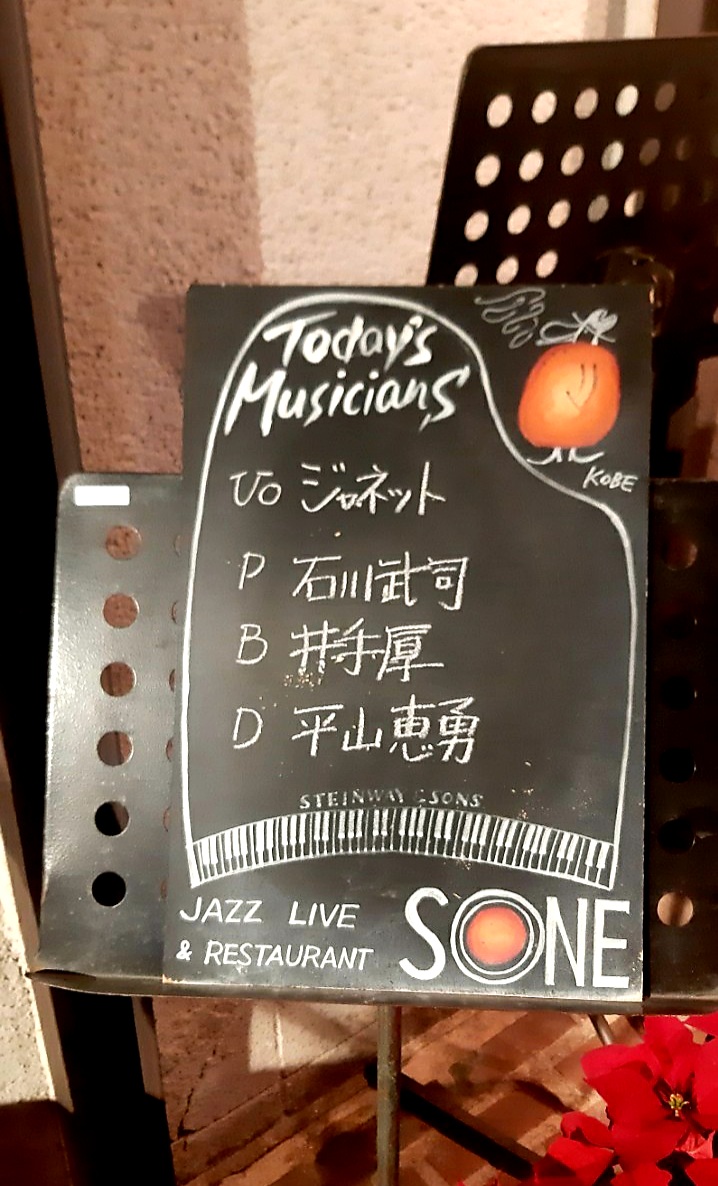 Today's
Musicians
KOBE
Vo ジャネット
P 石川武司
B 井手厚
D 平山恵勇
STEINWAY & SONS
JAZZ LIVE
& RESTAURANT
SONE